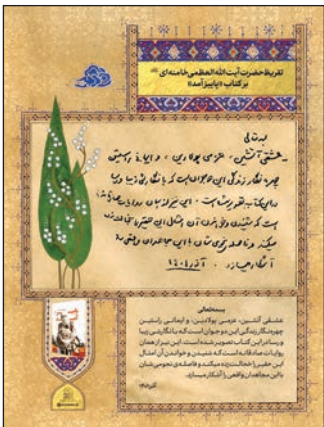 تقریظ حضرت آیت‌الله العظمی خامنه‌ای
بر کتاب «پاییز آمد»
بسمه‌تعالی
عشقی آتشین، عزمی پولادین، و ایمانی راستین
چهره‌نگار زندگی این دو جوان است که با نگارشی زیبا و رسا
در این کتاب تصویر شده است. این نیز از همان روایات صادقانه
است که شنیدن و خواندن آن امثال این حقیر را خجالت‌زده
میکند و فاصله‌ی نجومی‌شان با این مجاهدان واقعی را
آشکار میسازد. آذر ۱۴۰۱
بسمه‌تعالی
عشقی آتشین، عزمی پولادین، و ایمانی راستین
چهره‌نگار زندگی این دو جوان است که با نگارشی زیبا
و رسا در این کتاب تصویر شده است. این نیز از همان
روایات صادقانه است که شنیدن و خواندن آن امثال
این حقیر را خجالت‌زده میکند و فاصله‌ی نجومی‌شان
با این مجاهدان واقعی را آشکار میسازد.
آذر ۱۴۰۱